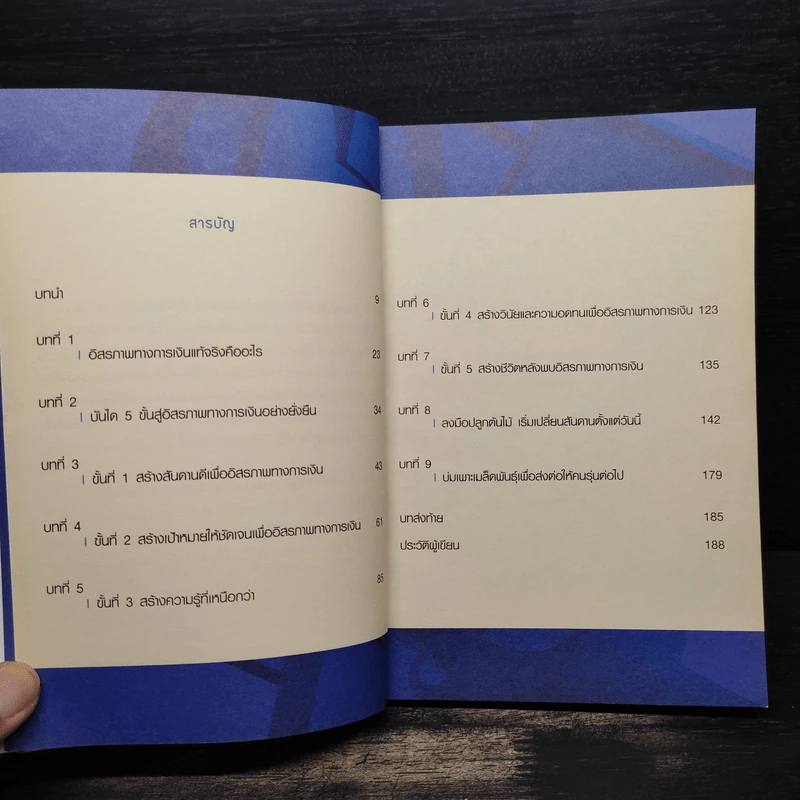 สารบัญ
บทนำ 9
บทที่ 1
อิสรภาพทางการเงินแท้จริงคืออะไร 23
บทที่ 2
บันได 5 ขั้นสู่อิสรภาพทางการเงินอย่างยั่งยืน 34
บทที่ 3
ขั้นที่ 1 สร้างสันดานดีเพื่ออิสรภาพทางการเงิน 43
บทที่ 4
ขั้นที่ 2 สร้างเป้าหมายให้ชัดเจนเพื่ออิสรภาพทางการเงิน 61
บทที่ 5
ขั้นที่ 3 สร้างความรู้ที่เหนือกว่า 85
บทที่ 6
ขั้นที่ 4 สร้างวินัยและความอดทนเพื่ออิสรภาพทางการเงิน 123
บทที่ 7
ขั้นที่ 5 สร้างชีวิตหลังพบอิสรภาพทางการเงิน 135
บทที่ 8
ลงมือปลูกต้นไม้ เริ่มเปลี่ยนสันดานตั้งแต่วันนี้ 142
บทที่ 9
บ่มเพาะเมล็ดพันธุ์เพื่อส่งต่อให้คนรุ่นต่อไป 179
บทส่งท้าย 185
ประวัติผู้เขียน 188